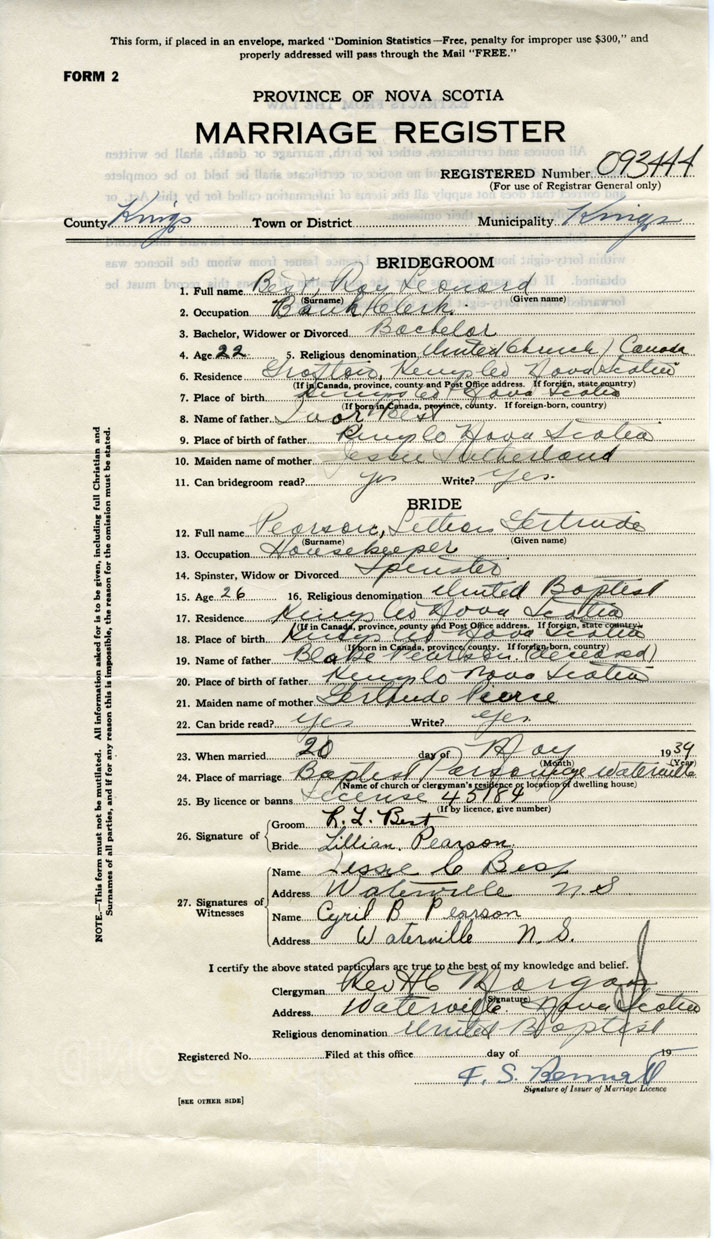 This form, if placed in an envelope, marked "Dominion Statistics—Free, penalty for improper use $300," and
properly addressed will pass through the Mail "FREE."
FORM 2
PROVINCE OF NOVA SCOTIA
MARRIAGE REGISTER
REGISTERED Number 093444
(For use of Registrar General only)
County Kings Town or District Municipality Kings
BRIDEGROOM
1. Full name Best, Roy Leonard
(Surname) (Given name)
2. Occupation Bank Clerk.
3. Bachelor, Widower or Divorced Bachelor
4. Age 22 5. Religious denomination United Church / Canada
6. Residence Grafton, Kings Co Nova Scotia
(If in Canada, province, county and Post Office address. If foreign, state country)
7. Place of birth Kings Co Nova Scotia
(If born in Canada, province, county. If foreign-born, country)
8. Name of father Best
9. Place of father Kings Co Nova Scotia
10. Maiden name of mother Jessie Sutherland
11. Can bridegroom read? yes Write? yes.
BRIDE
12. Full name Pearson, Lillian Gertrude
(Surname) (Given name)
13. Occupation Housekeeper
14. Spinster, Widow or Divorced Spinster
15. Age 26 16. Religious denomination United Baptist
17. Residence Kings Co Nova Scotia
(If in Canada, province, county and Post Office address. If foreign, state country)
18. Place of birth Kings Co Nova Scotia
(If born in Canada, province, county. If foreign-born, country)
19. Name of father Blake Pearson (deceased)
20. Place of birth of father Kings Co Nova Scotia
21. Maiden name of mother Gertrude Pierce
22. Can bride read? yes Write? yes
23. When married 20 day of May 1939
(Month) (Year)
24. Place of marriage Baptist Parsonage Waterville
(Name of church or clergyman's residence or location of dwelling house)
25. By licence or banns License 45184
(If by licence, give number)
26. Signature of
Groom R. L. Best
Bride Lillian Pearson.
27. Signatures of Witnesses
Name Jessie C Best
Address Waterville N.S
Name Cyril B Pearson
Address Waterville N. S.
I certify the above stated particulars are true to the best of my knowledge and belief.
Clergyman Rev H C Morgan
(Signature)
Address Waterville. Nova Scotia
Religious denomination United Baptist
Registered No. Filed at this office day of 19
F. S. Bennett
Signature of Issuer of Marriage Licence
[SEE OTHER SIDE]
NOTE.—This form must not be mutilated. All information asked for is to be given, including full Christian and
Surnames of all parties, and if for any reason this is impossible, the reason for the omission must be stated.